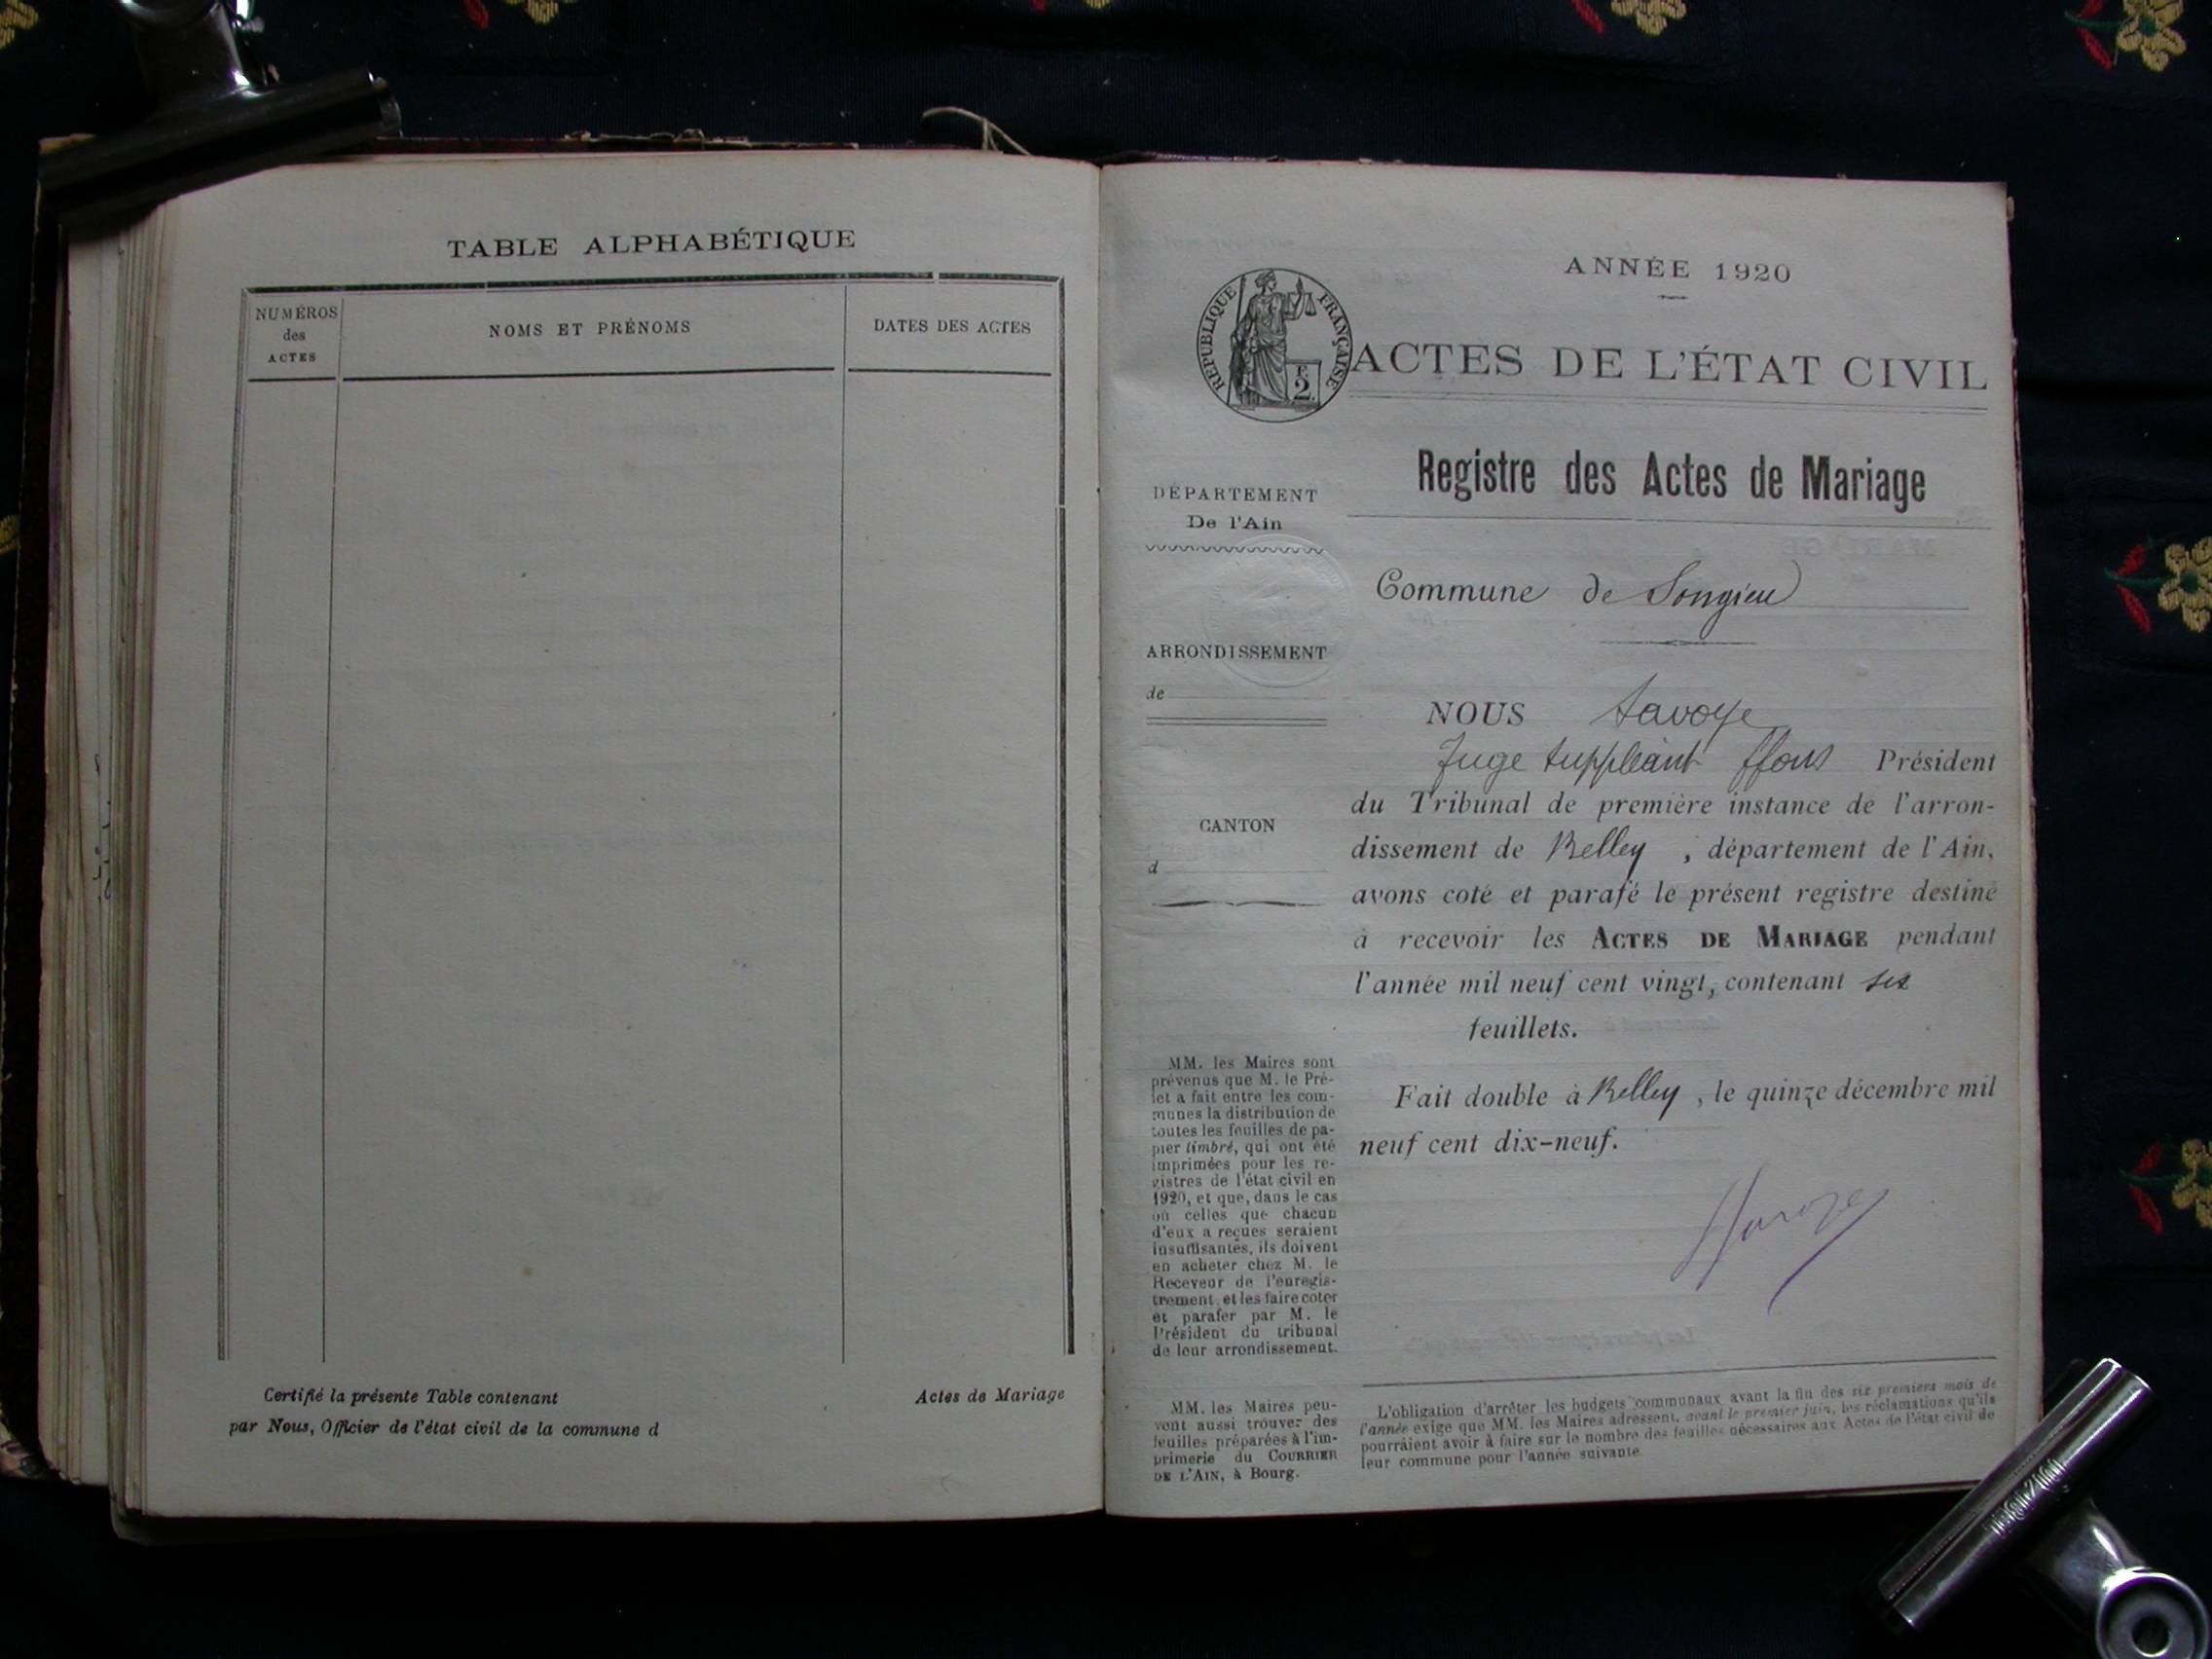 TABLE ALPHABÉTIQUE
NUMÉROS
des
ACTES
NOMS ET PRÉNOMS
DATES DES ACTES
Certifié la présente Table contenant
Actes de Mariage
par Nous, Officier de l'état civil de la commune d
ANNÉE 1920
RÉPUBLIQUE FRANÇAISE
2
ACTES DE L'ÉTAT CIVIL
Registre des Actes de Mariage
DÉPARTEMENT
De l'Ain
ARRONDISSEMENT
de
CANTON
d
Commune de Songieu
NOUS Savoye
Juge suppléant ffons Président
du Tribunal de première instance de l'arron-
dissement de Belley, département de l'Ain,
avons coté et parafé le présent registre destiné
à recevoir les ACTES DE MARIAGE pendant
l'année mil neuf cent vingt, contenant six
feuillets.
Fait double à Belley, le quinze décembre mil
neuf cent dix-neuf.
Savoye
MM. les Maires sont
prévenus que M. le Pré-
fet a fait entre les com-
munes la distribution de
toutes les feuilles de pa-
pier timbré, qui ont été
imprimées pour les re-
gistres de l'état civil en
1920, et que, dans le cas
où celles que chacun
d'eux a reçues seraient
insuffisantes, ils doivent
en acheter chez M. le
Receveur de l'enregis-
trement, et les faire coter
et parafer par M. le
Président du tribunal
de leur arrondissement.
MM. les Maires peu-
vent aussi trouver des
feuilles préparées à l'im-
primerie du COURRIER
DE L'AIN, à Bourg.
L'obligation d'arrêter les budgets communaux avant la fin des six premiers mois de
l'année exige que MM. les Maires adressent, avant le premier juin, les réclamations qu'ils
pourraient avoir à faire sur le nombre des feuilles nécessaires aux Actes de l'état civil de
leur commune pour l'année suivante.